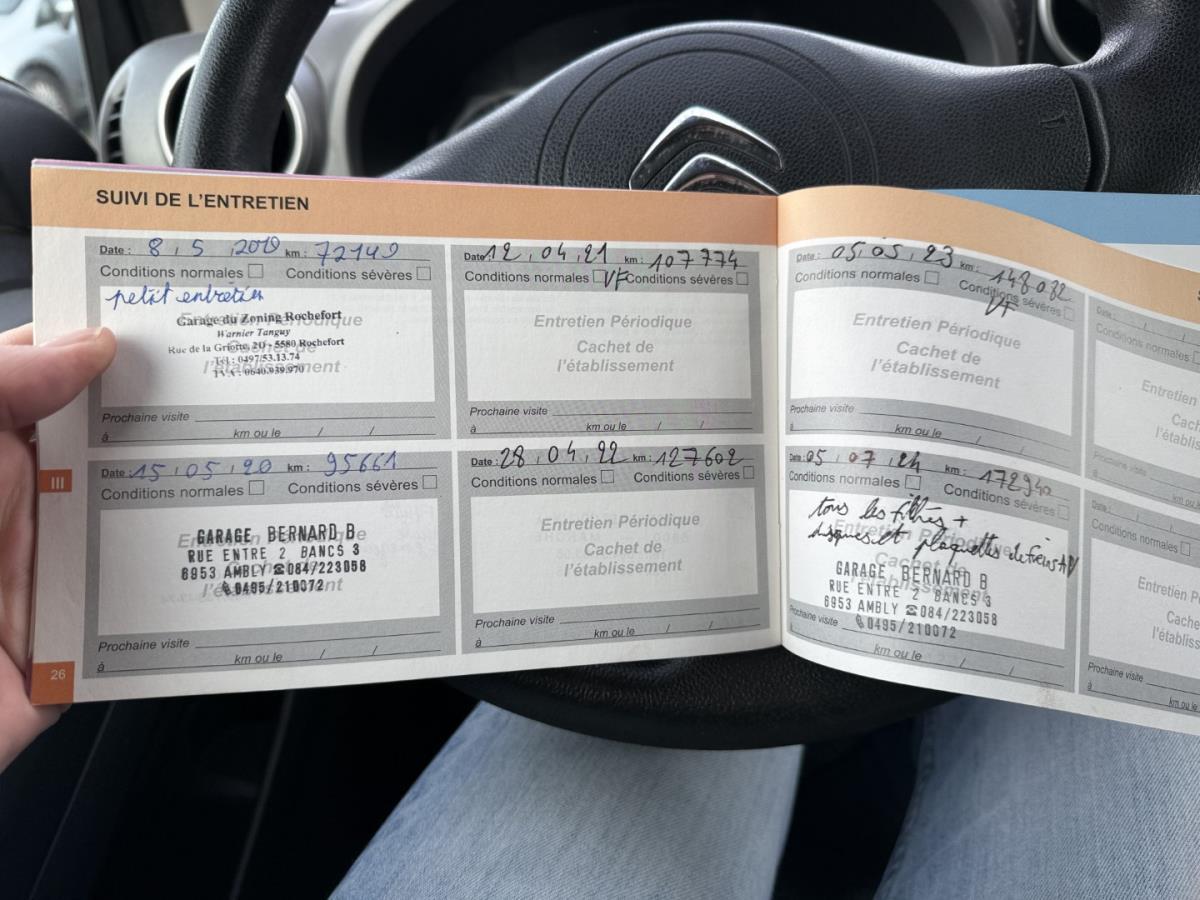 SUIVI DE L'ENTRETIEN
Date : 8 , 5 , 2019 km : 72149
Conditions normales Conditions sévères
petit entretien
Entretien Périodique
Cachet de
l'établissement
Garage du Zoning Rochefort
Warnier Tanguy
Rue de la Griotte, 2D - 5580 Rochefort
Tél : 0497/53.13.74
TVA : 0640.939.970
Prochaine visite
à km ou le / /
Date : 12 , 04 , 21 km : 107774
Conditions normales VF Conditions sévères
Entretien Périodique
Cachet de
l'établissement
Prochaine visite
à km ou le / /
Date : 15 , 05 , 20 km : 95661
Conditions normales Conditions sévères
Entretien Périodique
Cachet de
l'établissement
GARAGE BERNARD B
RUE ENTRE 2 BANCS 3
6953 AMBLY ☎084/223058
0495/210072
Prochaine visite
à km ou le / /
Date : 28 , 04 , 22 km : 127602
Conditions normales Conditions sévères
Entretien Périodique
Cachet de
l'établissement
Prochaine visite
à km ou le / /
III
26
Date : 05 , 05 , 23 km : 148032
Conditions normales Conditions sévères
VF
Entretien Périodique
Cachet de
l'établissement
Prochaine visite
à km ou le / /
Date : 05 , 07 , 24 km : 172940
Conditions normales Conditions sévères
tous les filtres +
disques et plaquettes de freins AV
Entretien Périodique
Cachet de
l'établissement
GARAGE BERNARD B
RUE ENTRE 2 BANCS 3
6953 AMBLY ☎084/223058
0495/210072
Prochaine visite
à km ou le / /
Date : / /
Conditions normales
Entretien
Prochaine visite
à km ou le
Date : / /
Conditions normales
Entretien
Prochaine visite
à km ou le